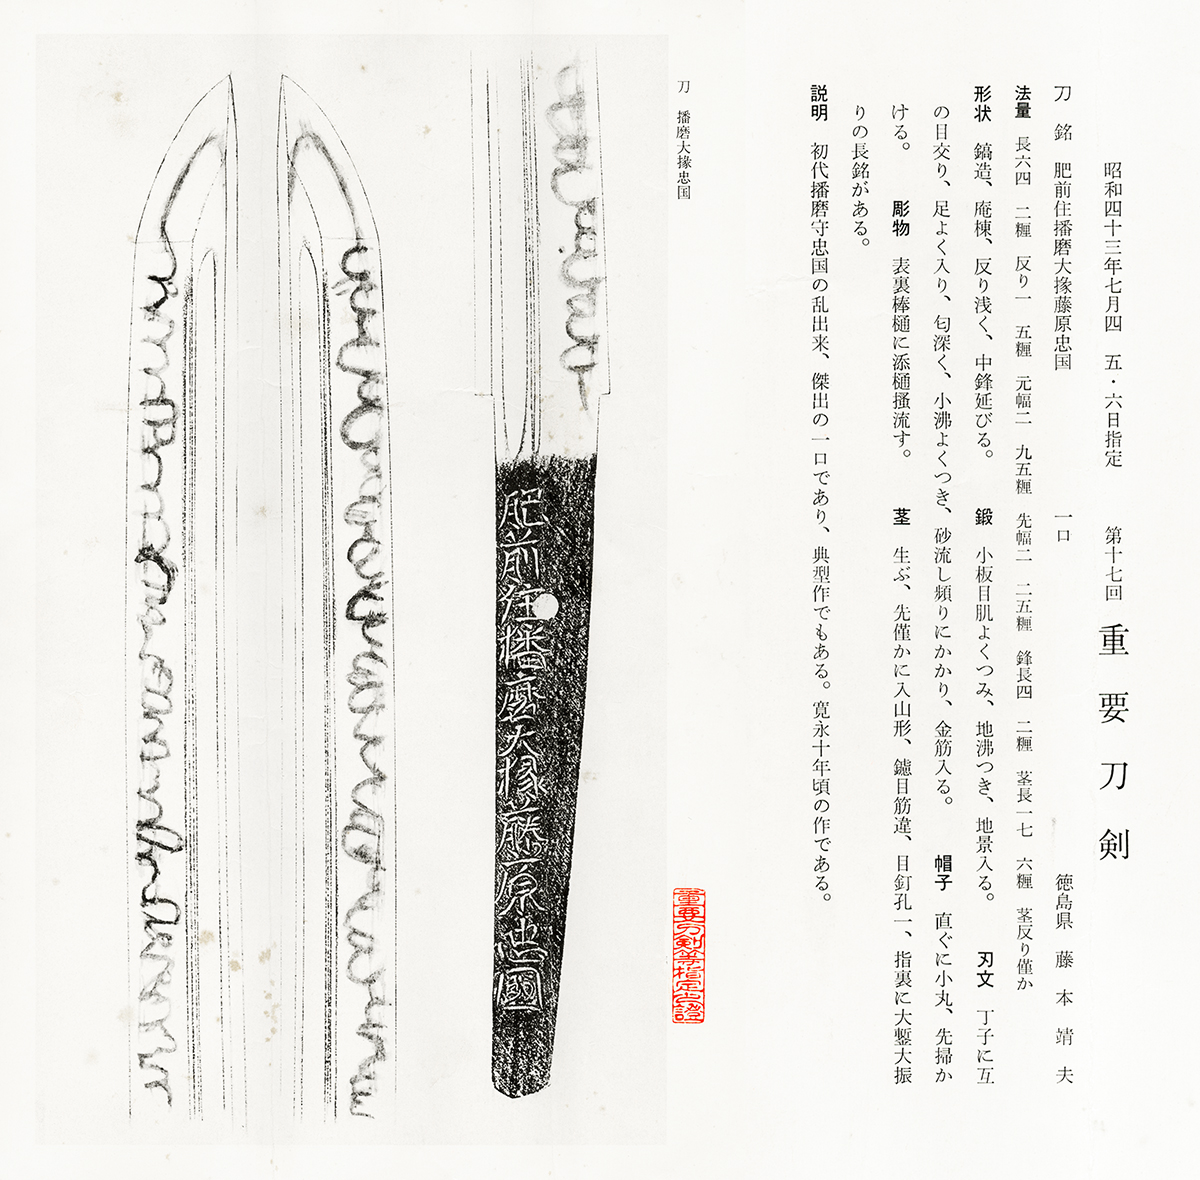 昭和四十三年七月四　五・六日指定　第十七回　重要刀剣
刀　銘　肥前住播磨大掾藤原忠国　一口　徳島県　藤本靖夫
法量　長六四　二糎　反り一　五糎　元幅二　九五糎　先幅二　二五糎　鋒長四　二糎　茎長一七　六糎　茎反り僅か
形状　鎬造、庵棟、反り浅く、中鋒延びる。　鍛　小板目肌よくつみ、地沸つき、地景入る。　刃文　丁子に互
の目交り、足よく入り、匂深く、小沸よくつき、砂流し頻りにかかり、金筋入る。　帽子　直ぐに小丸、先掃か
ける。　彫物　表裏棒樋に添樋掻流す。　茎　生ぶ、先僅かに入山形、鑢目筋違、目釘孔一、指裏に大鏨大振
りの長銘がある。
説明　初代播磨守忠国の乱出来、傑出の一口であり、典型作でもある。寛永十年頃の作である。
刀　播磨大掾忠国
重要刀剣等指定之證
肥前住播磨大掾藤原忠國